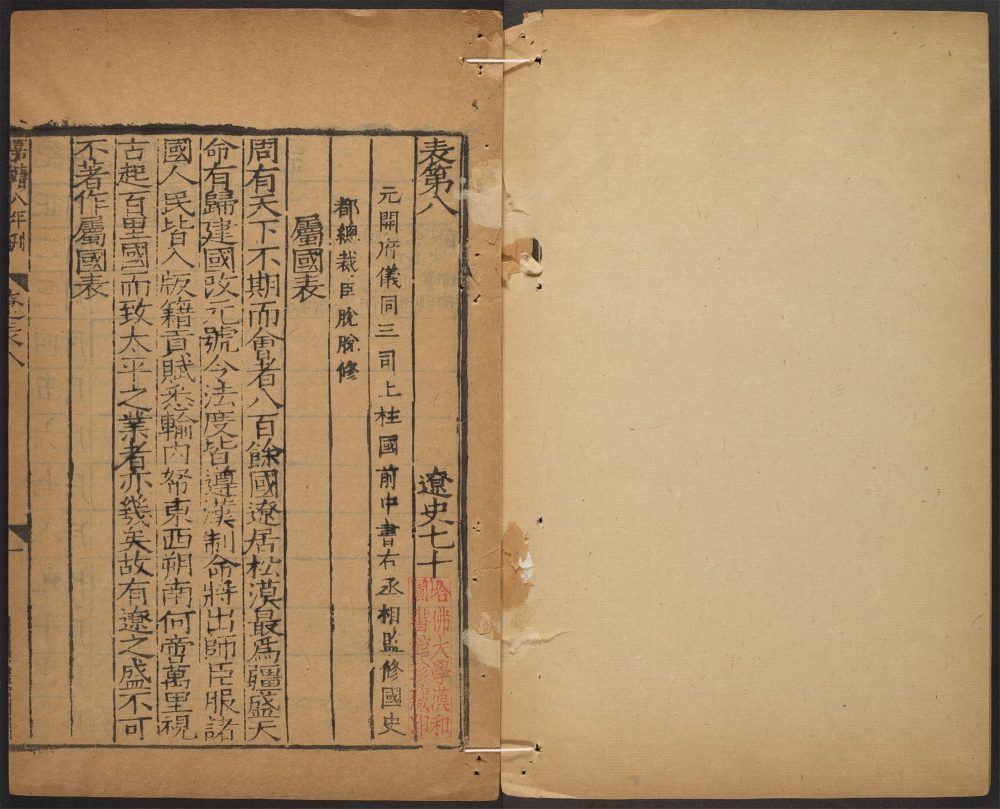 表第八 遼史七十
元開府儀同三司上柱國前中書右丞相監修國史
都總裁臣脫脫修
屬國表
周有天下不期而會者八百餘國遼居松漠最爲彊盛天
命有歸建國改元號令法度皆遵漢制命將出師臣服諸
國人民皆入版籍貢賦悉輸内帑東西朔南何啻萬里視
古起百里國而致太平之業者亦幾矣故有遼之盛不可
不著作屬國表
嘉靖八年刊
哈佛大學漢和
圖書館珍藏印